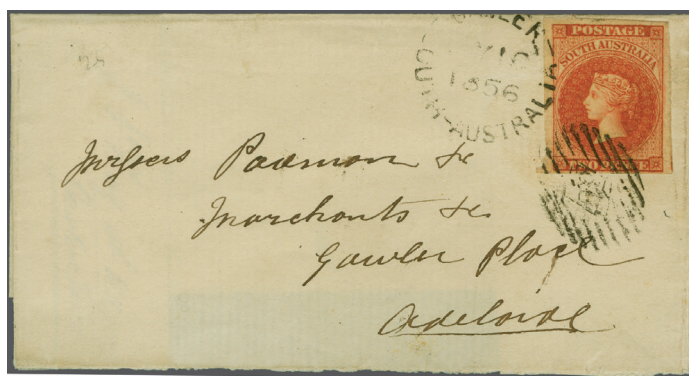 GAWLER
MY 10
1856
SOUTH-AUSTRALIA
POSTAGE
SOUTH AUSTRALIA
TWO PENCE
Messrs Paxman &c
Merchants &c
Gawler Place
Adelaide